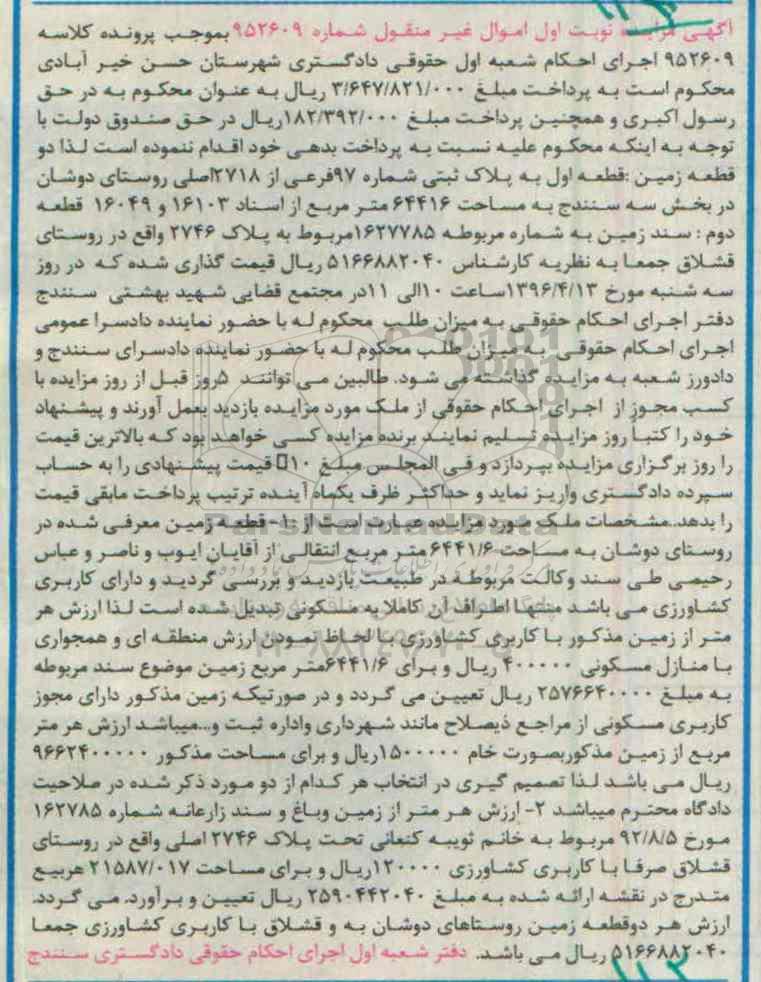 آگهی مزایده نوبت اول اموال غیر منقول شماره ۹۵۲۶۰۹ بموجب پرونده کلاسه
۹۵۲۶۰۹ اجرای احکام شعبه اول حقوقی دادگستری شهرستان حسن خیر آبادی
محکوم است به پرداخت مبلغ ۳/۶۴۷/۸۲۱/۰۰۰ ریال به عنوان محکوم به در حق
رسول اکبری و همچنین پرداخت مبلغ ۱۸۲/۳۹۲/۰۰۰ریال در حق صندوق دولت با
توجه به اینکه محکوم علیه نسبت به پرداخت بدهی خود اقدام ننموده است لذا دو
قطعه زمین :قطعه اول به پلاک ثبتی شماره ۹۷فرعی از ۲۷۱۸اصلی روستای دوشان
در بخش سه سنندج به مساحت ۶۴۴۱۶ متر مربع از اسناد ۱۶۱۰۳ و ۱۶۰۴۹ قطعه
دوم : سند زمین به شماره مربوطه ۱۶۲۷۷۸۵مربوط به پلاک ۲۷۴۶ واقع در روستای
قشلاق جمعا به نظریه کارشناس ۵۱۶۶۸۸۲۰۴۰ ریال قیمت گذاری شده که در روز
سه شنبه مورخ ۱۳۹۶/۴/۱۳ساعت ۱۰الی ۱۱در مجتمع قضایی شهید بهشتی سنندج
دفتر اجرای احکام حقوقی به میزان طلب محکوم له با حضور نماینده دادسرا عمومی
اجرای احکام حقوقی به میزان طلب محکوم له با حضور نماینده دادسرای سنندج و
دادورز شعبه به مزایده گذاشته می شود. طالبین می توانند ۵روز قبل از روز مزایده با
کسب مجوز از اجرای احکام حقوقی از ملک مورد مزایده بازدید بعمل آورند و پیشنهاد
خود را کتباً روز مزایده تسلیم نمایند برنده مزایده کسی خواهد بود که بالاترین قیمت
را روز برگزاری مزایده بپردازد و فی المجلس مبلغ ۱۰ قیمت پیشنهادی را به حساب
سپرده دادگستری واریز نماید و حداکثر ظرف یکماه آینده ترتیب پرداخت مابقی قیمت
را بدهد.مشخصات ملک مورد مزایده عبارت است از :۱- قطعه زمین معرفی شده در
روستای دوشان به مساحت ۶۴۴۱/۶متر مربع انتقالی از آقایان ایوب و ناصر و عباس
رحیمی طی سند وکالت مربوطه در طبیعت بازدید و بررسی گردید و دارای کاربری
کشاورزی می باشد منتها اطراف آن کاملا به مسکونی تبدیل شده است لذا ارزش هر
متر از زمین مذکور با کاربری کشاورزی با لحاظ نمودن ارزش منطقه ای و همجواری
با منازل مسکونی ۴۰۰۰۰۰ ریال و برای ۶۴۴۱/۶متر مربع زمین موضوع سند مربوطه
به مبلغ ۲۵۷۶۶۴۰۰۰۰ ریال تعیین می گردد و در صورتیکه زمین مذکور دارای مجوز
کاربری مسکونی از مراجع ذیصلاح مانند شهرداری واداره ثبت و...میباشد ارزش هر متر
مربع از زمین مذکوربصورت خام ۱۵۰۰۰۰۰ریال و برای مساحت مذکور ۹۶۶۲۴۰۰۰۰۰
ریال می باشد لذا تصمیم گیری در انتخاب هر کدام از دو مورد ذکر شده در صلاحیت
دادگاه محترم میباشد ۲- ارزش هر متر از زمین وباغ و سند زارعانه شماره ۱۶۲۷۸۵
مورخ ۹۲/۸/۵ مربوط به خانم ثویبه کنعانی تحت پلاک ۲۷۴۶ اصلی واقع در روستای
قشلاق صرفا با کاربری کشاورزی ۱۲۰۰۰۰ریال و برای مساحت ۲۱۵۸۷/۰۱۷ هربیع
متدرج در نقشه ارائه شده به مبلغ ۲۵۹۰۴۴۲۰۴۰ ریال تعیین و برآورد. می گردد.
ارزش هر دوقطعه زمین روستاهای دوشان به و قشلاق با کاربری کشاورزی جمعا
۵۱۶۶۸۸۲۰۴۰ ریال می باشد. دفتر شعبه اول اجرای احکام حقوقی دادگستری سنندج
ParsNamadData